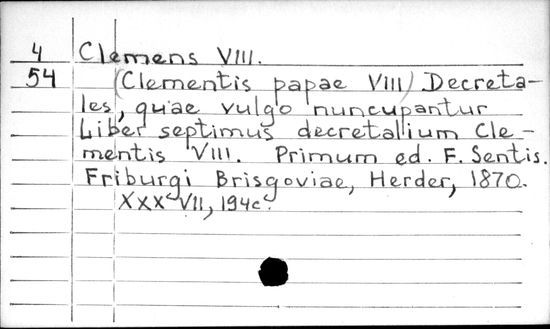 4 Clemens VIII.
54 (Clementis papae VIII) Decreta-
les, quae vulgo nuncupantur
Liber septimus decretalium Cle-
mentis VIII. Primum ed. F. Sentis.
Friburgi Brisgoviae, Herder, 1870.
XXXVII, 194c.